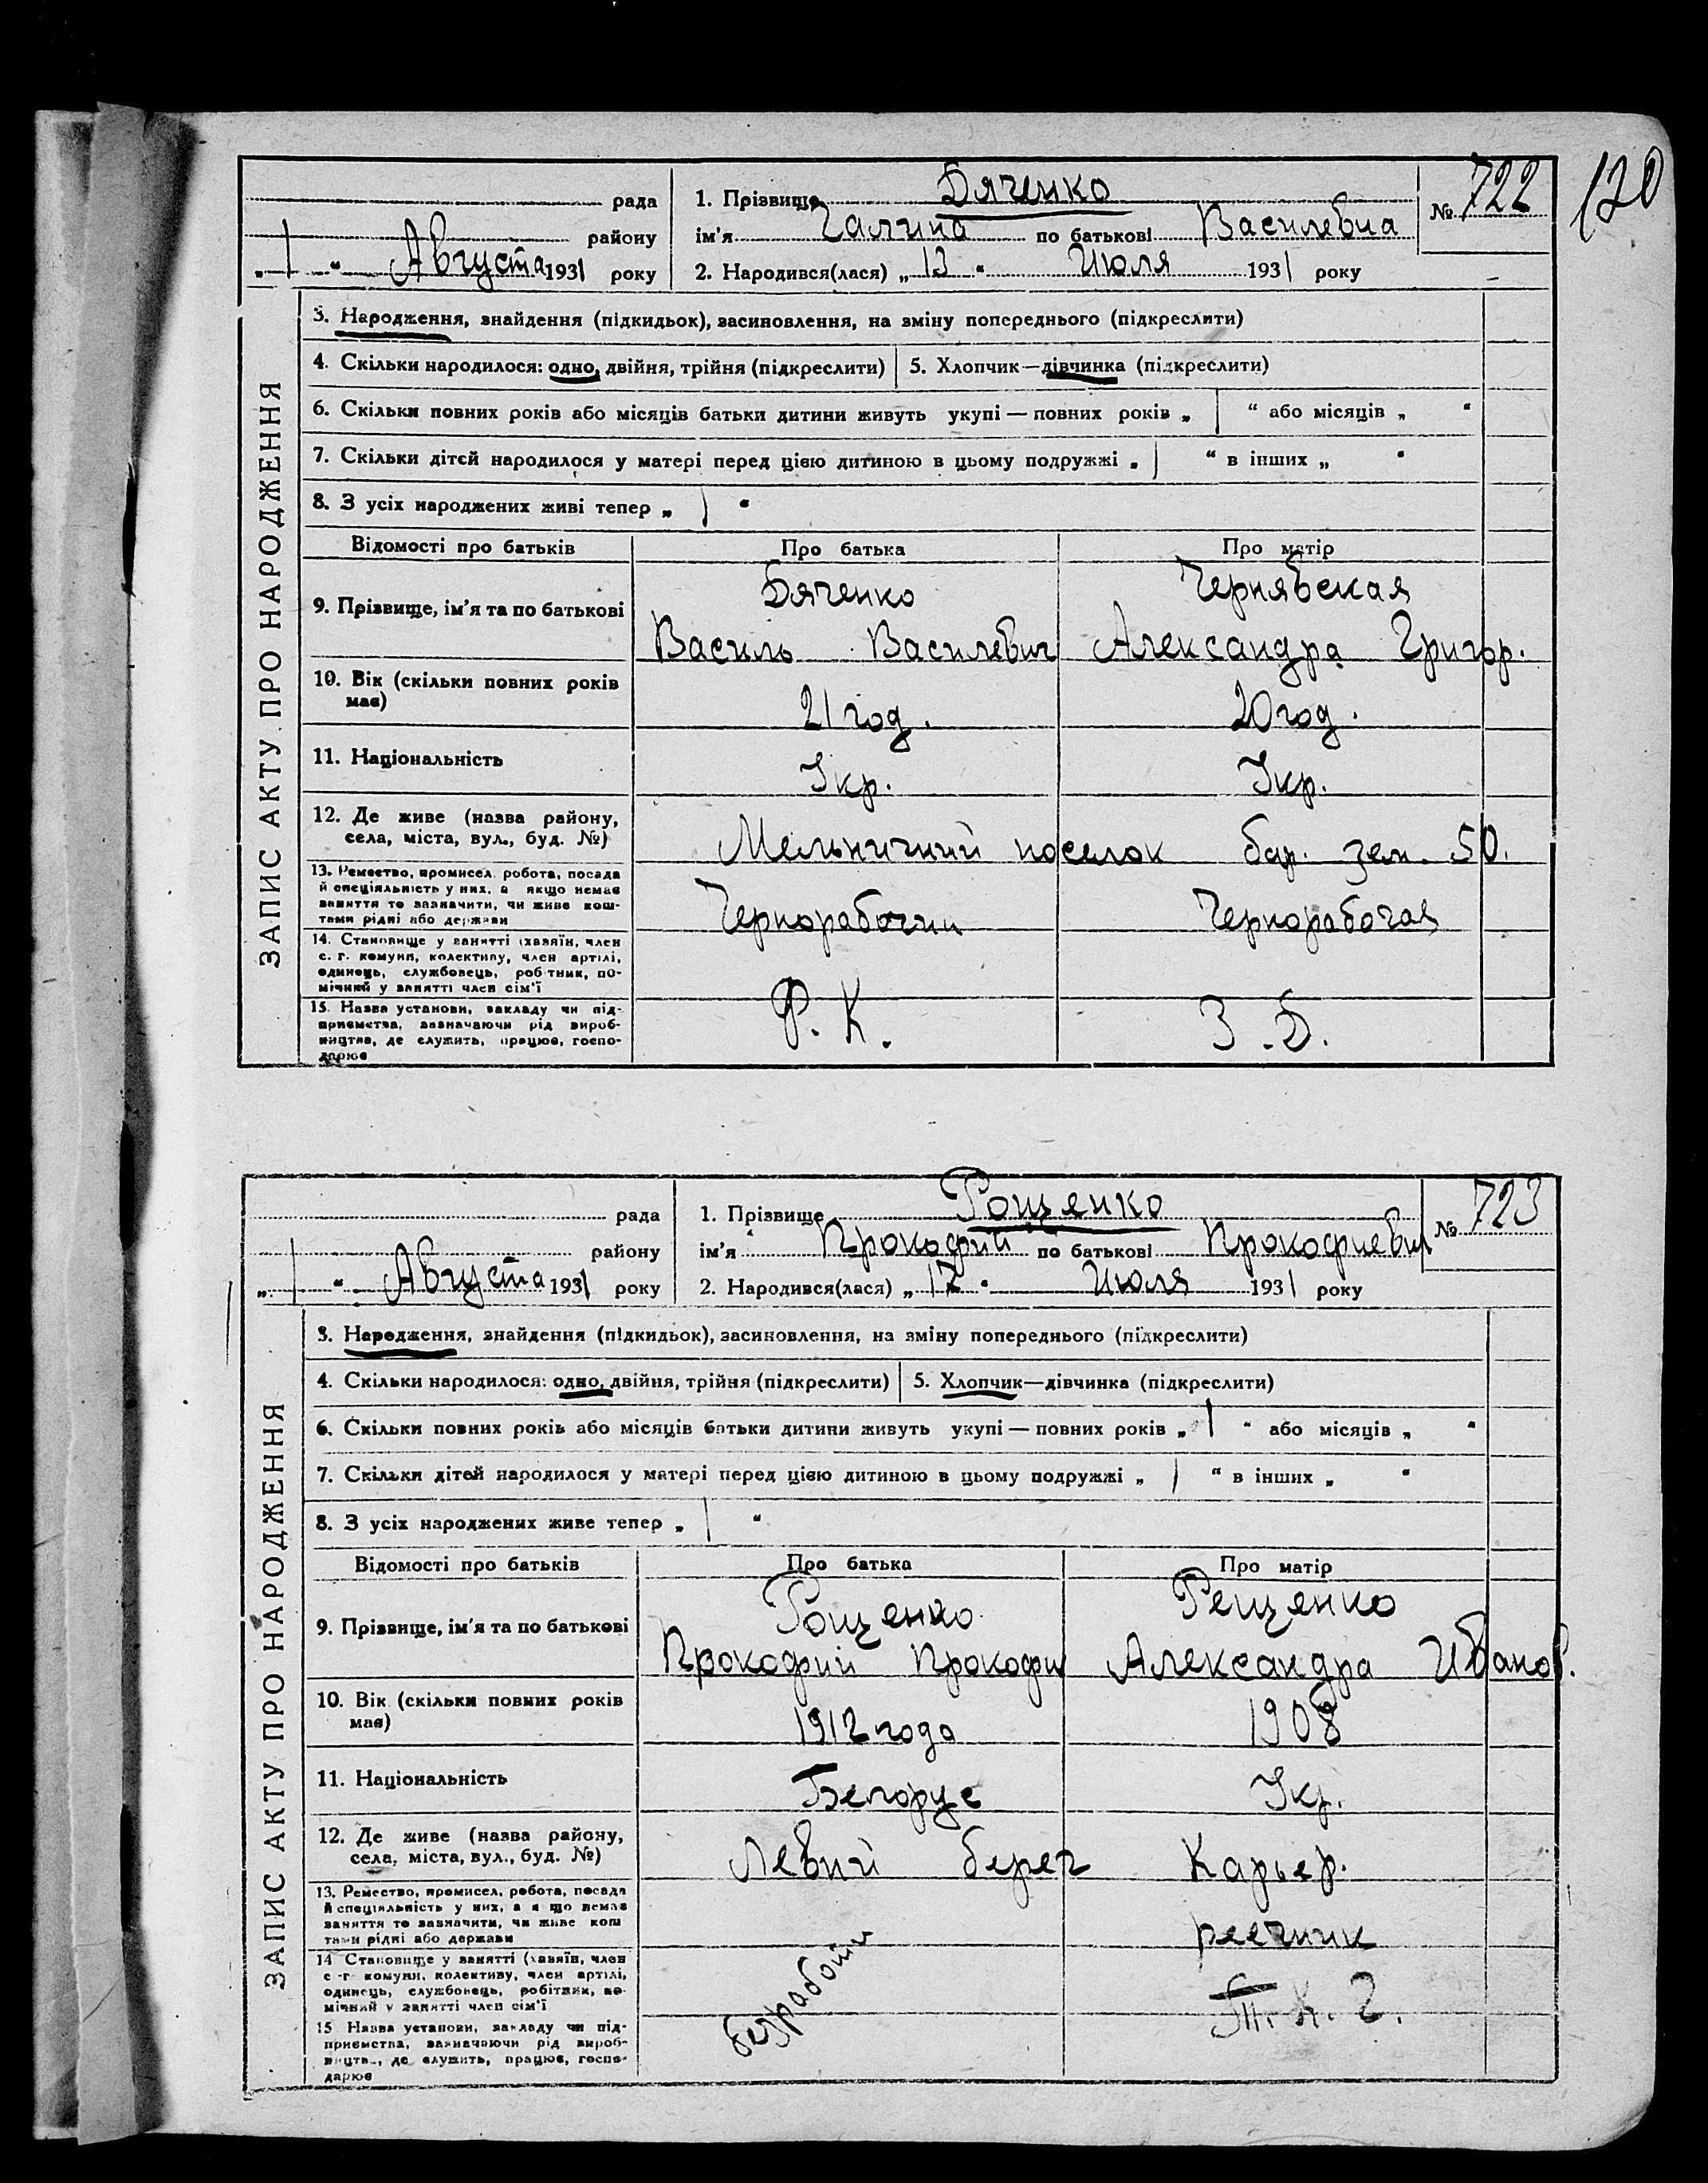 120
№ 722
рада
району
„ 1 “ Августа 1931 року
1. Прізвище Дяченко
ім'я Галина по батькові Василевна
2. Народився(лася) „ 13 “ Июля 1931 року
ЗАПИС АКТУ ПРО НАРОДЖЕННЯ
3. Народження, знайдення (підкидьок), засиновлення, на зміну попереднього (підкреслити)
4. Скільки народилося: одно, двійня, трійня (підкреслити) 5. Хлопчик—дівчинка (підкреслити)
6. Скільки повних років або місяців батьки дитини живуть укупі — повних років „ 1 “ або місяців „ “
7. Скільки дітей народилося у матері перед цією дитиною в цьому подружжі „ 1 “ в інших „ “
8. З усіх народжених живі тепер „ 1 “
Відомості про батьків Про батька Про матір
9. Прізвище, ім'я та по батькові
Дяченко
Василь Василевич
Чернявская
Александра Григор.
10. Вік (скільки повних років
має)
21 год.
20 год.
11. Національність
Укр.
Укр.
12. Де живе (назва району,
села, міста, вул., буд. №)
Мельничний поселок бар. зем. 50.
13. Ремество, промисел, робота, посада
й спеціяльність у них, а якщо немає
заняття то зазначити, чи живе кош-
тами рідні або держави
Чернорабочий
Чернорабочая
14. Становище у занятті (хазяїн, член
с. г. комуни, колективу, член артілі,
одинець, службовець, робітник, по-
мічний у занятті член сім'ї
15. Назва установи, закладу чи під-
приємства, зазначаючи рід вироб-
ництва, де служить, працює, госпо-
дарює
Ф. К.
З. Д.
№ 723
рада
району
„ 1 “ Августа 1931 року
1. Прізвище Рощенко
ім'я Прокофий по батькові Прокофиевич
2. Народився(лася) „ 17 “ Июля 1931 року
ЗАПИС АКТУ ПРО НАРОДЖЕННЯ
3. Народження, знайдення (підкидьок), засиновлення, на зміну попереднього (підкреслити)
4. Скільки народилося: одно, двійня, трійня (підкреслити) 5. Хлопчик—дівчинка (підкреслити)
6. Скільки повних років або місяців батьки дитини живуть укупі — повних років „ 1 “ або місяців „ “
7. Скільки дітей народилося у матері перед цією дитиною в цьому подружжі „ 1 “ в інших „ “
8. З усіх народжених живе тепер „ 1 “
Відомості про батьків Про батька Про матір
9. Прізвище, ім'я та по батькові
Рощенко
Прокофий Прокофи
Рещенко
Александра Иванов.
10. Вік (скільки повних років
має)
1912 года
1908
11. Національність
Белорус
Укр.
12. Де живе (назва району,
села, міста, вул., буд. №)
Левий берег Карьер.
13. Ремество, промисел, робота, посада
й спеціяльність у них, а якщо немає
заняття то зазначити, чи живе кош
тами рідні або держави
реечник
14 Становище у занятті (хазяїн, член
с-г комуни, колективу, член артілі,
одинець, службовець, робітник, по-
мічний у занятті член сім'ї
15 Назва установи, закладу чи під-
приємства, зазначаючи рід вироб-
ництва, де служить, працює, госпо-
дарює